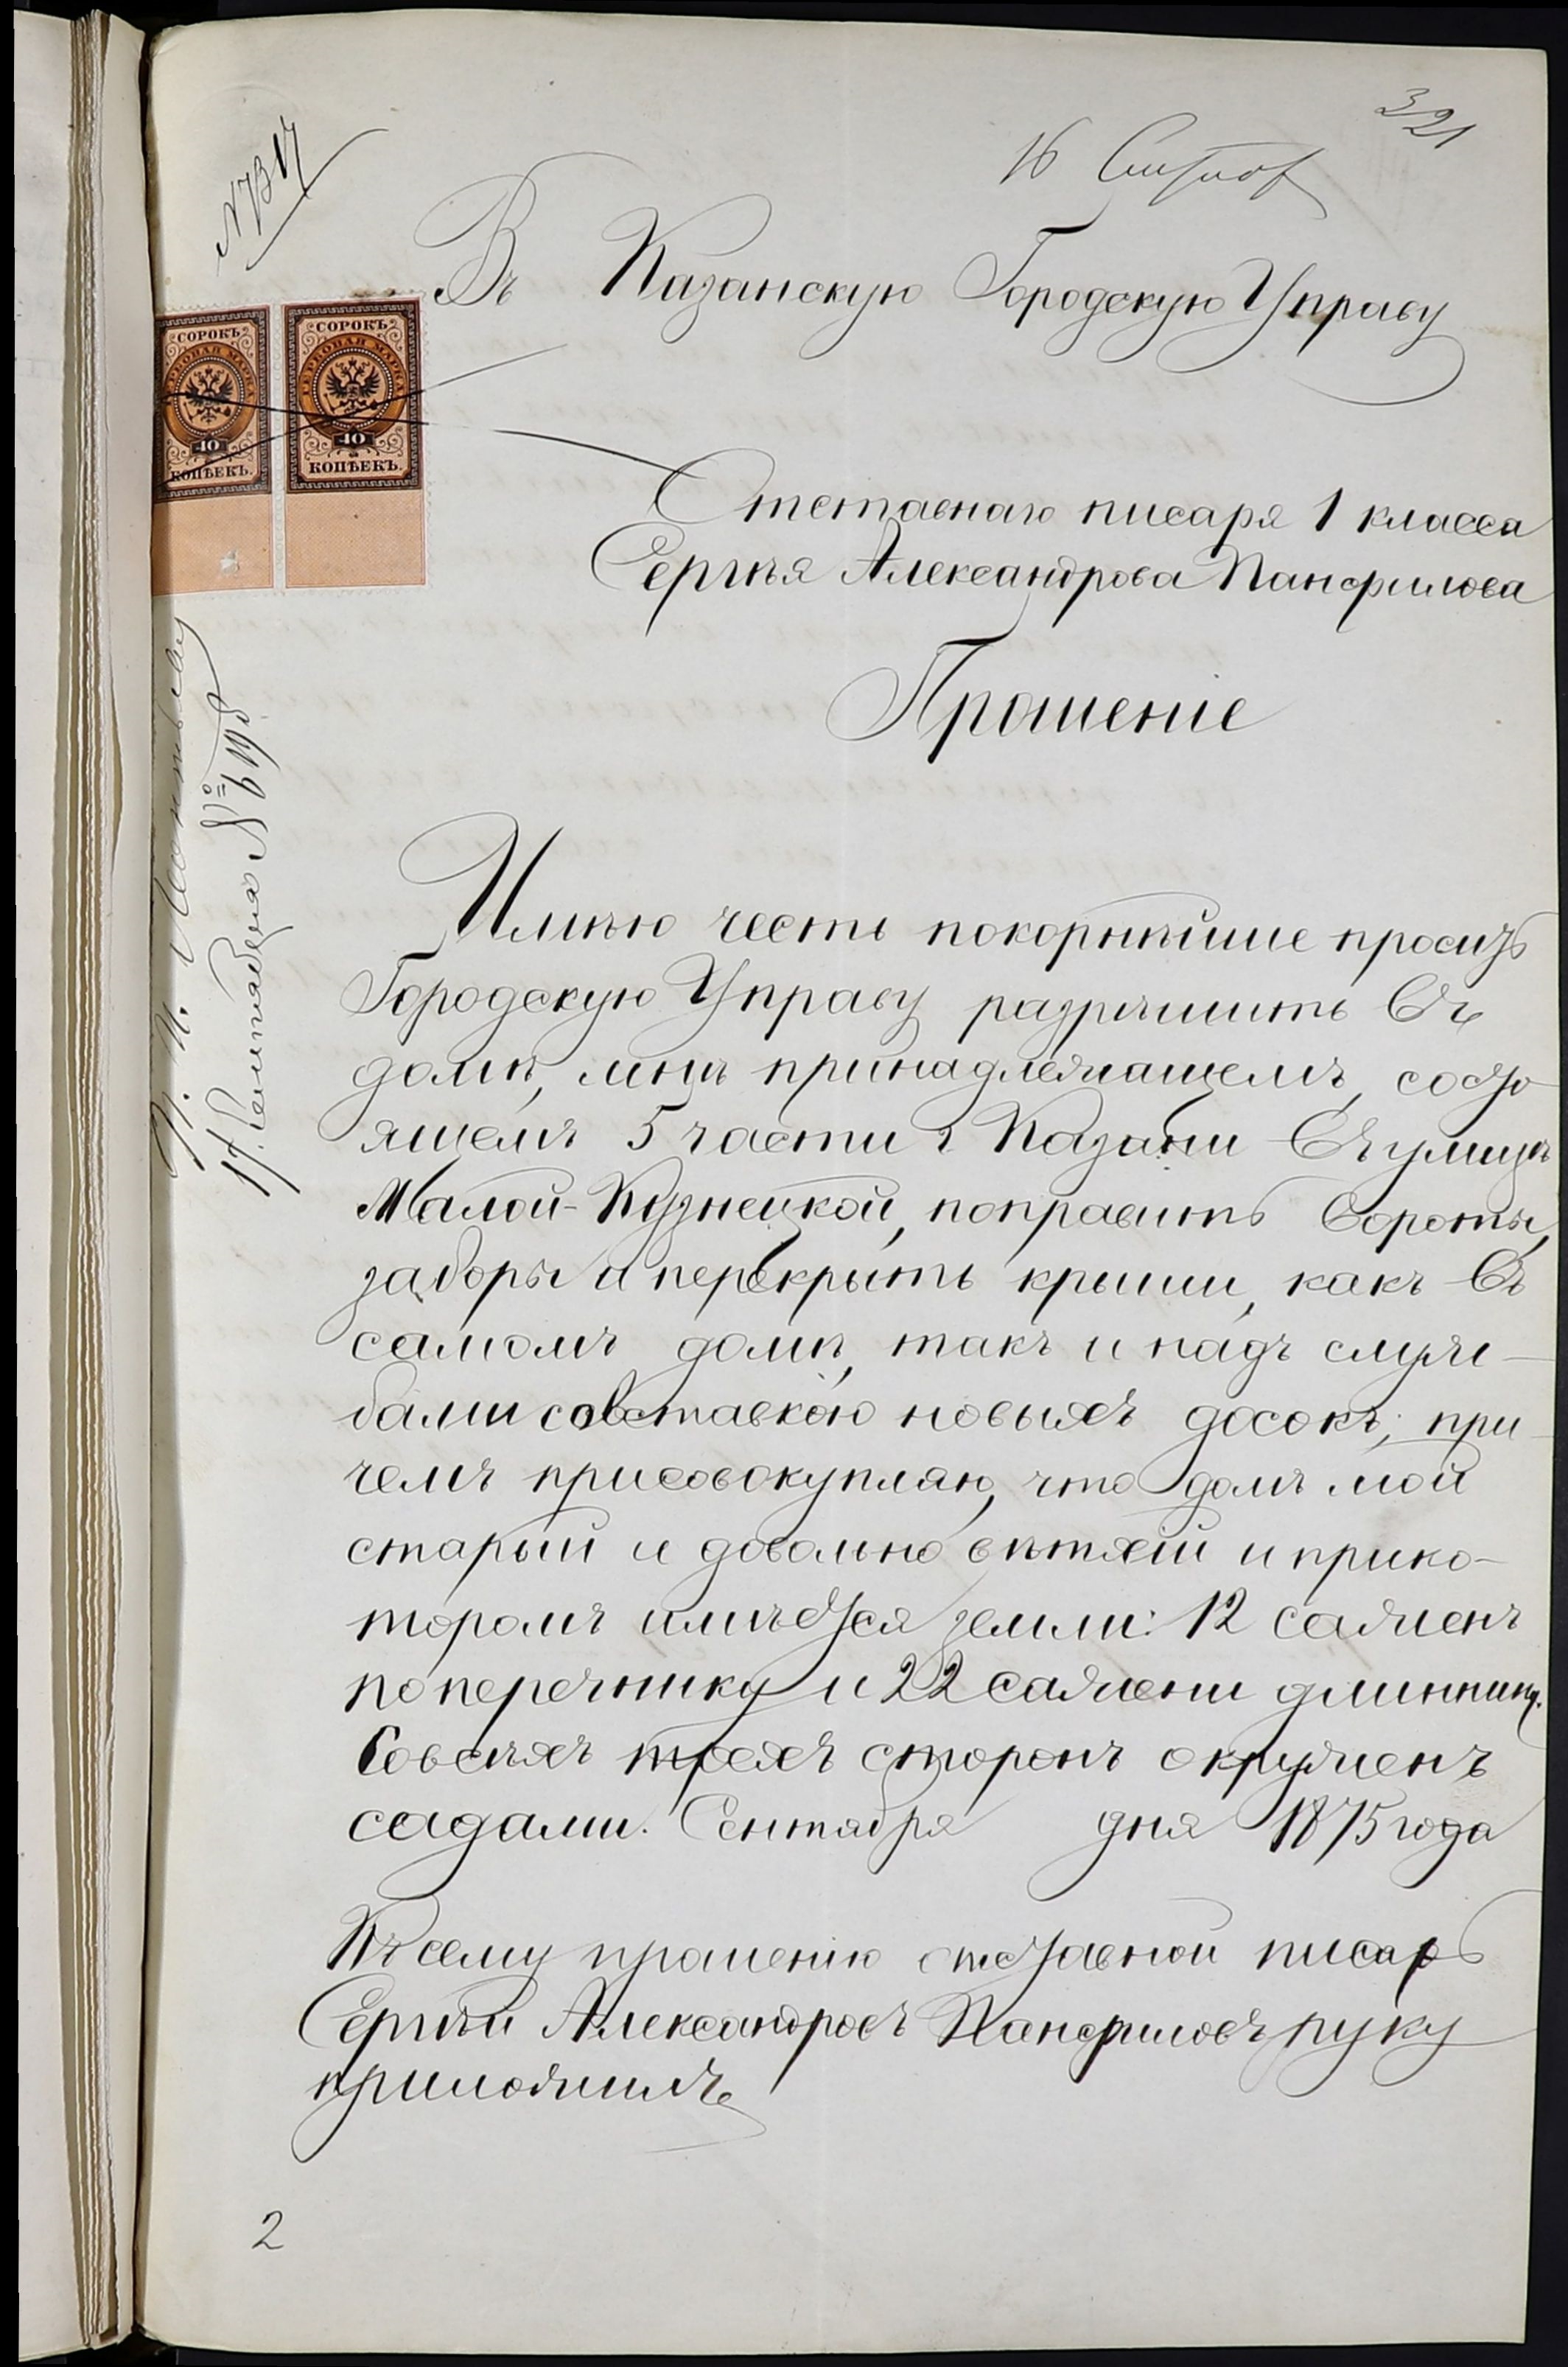 321
16 Сентяб
№ 7317
Въ Казанскую Городскую Управу
СОРОКЪ
ГЕРБОВАЯ МАРКА
40
КОПѢЕКЪ.
СОРОКЪ
ГЕРБОВАЯ МАРКА
40
КОПѢЕКЪ.
Отставнаго писаря 1 класса
Сергѣя Александрова Панфилова
Прошеніе
17. Сентября №
Имѣю честь покорнѣйше просить
Городскую Управу разрѣшить въ
домѣ, мнѣ принадлежащемъ, состо-
ящемъ 5 части г Казани въ улицѣ
Малой-Кузнецкой, поправить вороты,
заборы и перекрыть крыши, какъ въ
самомъ домѣ, такъ и надъ служ-
бами со вставкою новыхъ досокъ; при-
чемъ присовокупляю, что домъ мой
старый и довольно вѣтхій и прико-
торомъ имѣется земли: 12 саженъ
поперечнику и 22 сажени длиннику.
Совсѣхъ трехъ сторонъ окруженъ
садами. Сентября дня 1875 года
Къ сему прошенію отставной писарь
Сергѣй Александровъ Панфиловъ руку
приложилъ
2